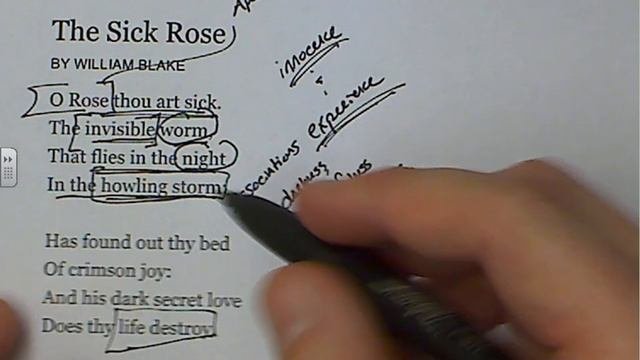 The Sick Rose
BY WILLIAM BLAKE
O Rose thou art sick.
The invisible worm
That flies in the night
In the howling storm
Has found out thy bed
Of crimson joy:
And his dark secret love
Does thy life destroy
innocence
&
experience